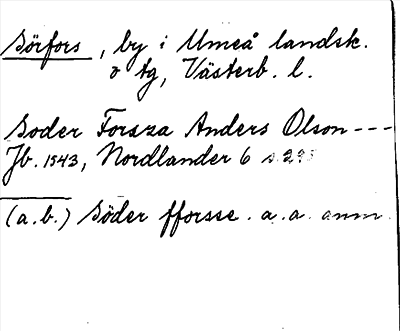 Sörfors, by i Umeå landsk.
o tg, Västerb. l.
Soder Forsza Anders Olson ---
Jb. 1543, Nordlander 6 s. 295
(a.b.) Söder fforsse. a.a. anm.